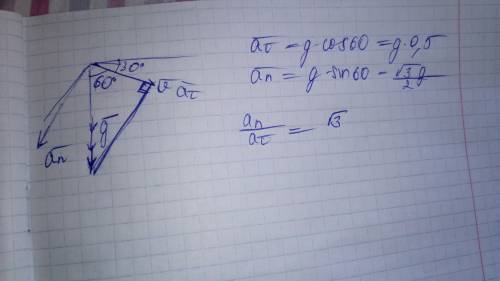 30°
60°
v⃗ a̅τ
g̅
a̅n
a̅τ = g·cos60 = g·0,5
a̅n = g·sin60 - √3/2 g
an/aτ = √3